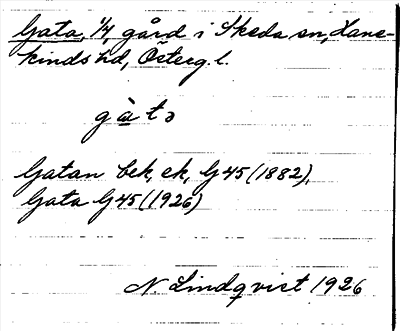 Gata, 1/4, gård i Skeda sn, Hane-
kinds hd, Österg. l.
gàtə
Gatan bek, ek, G 45 (1882),
Gata G 45 (1926)
N. Lindqvist 1926